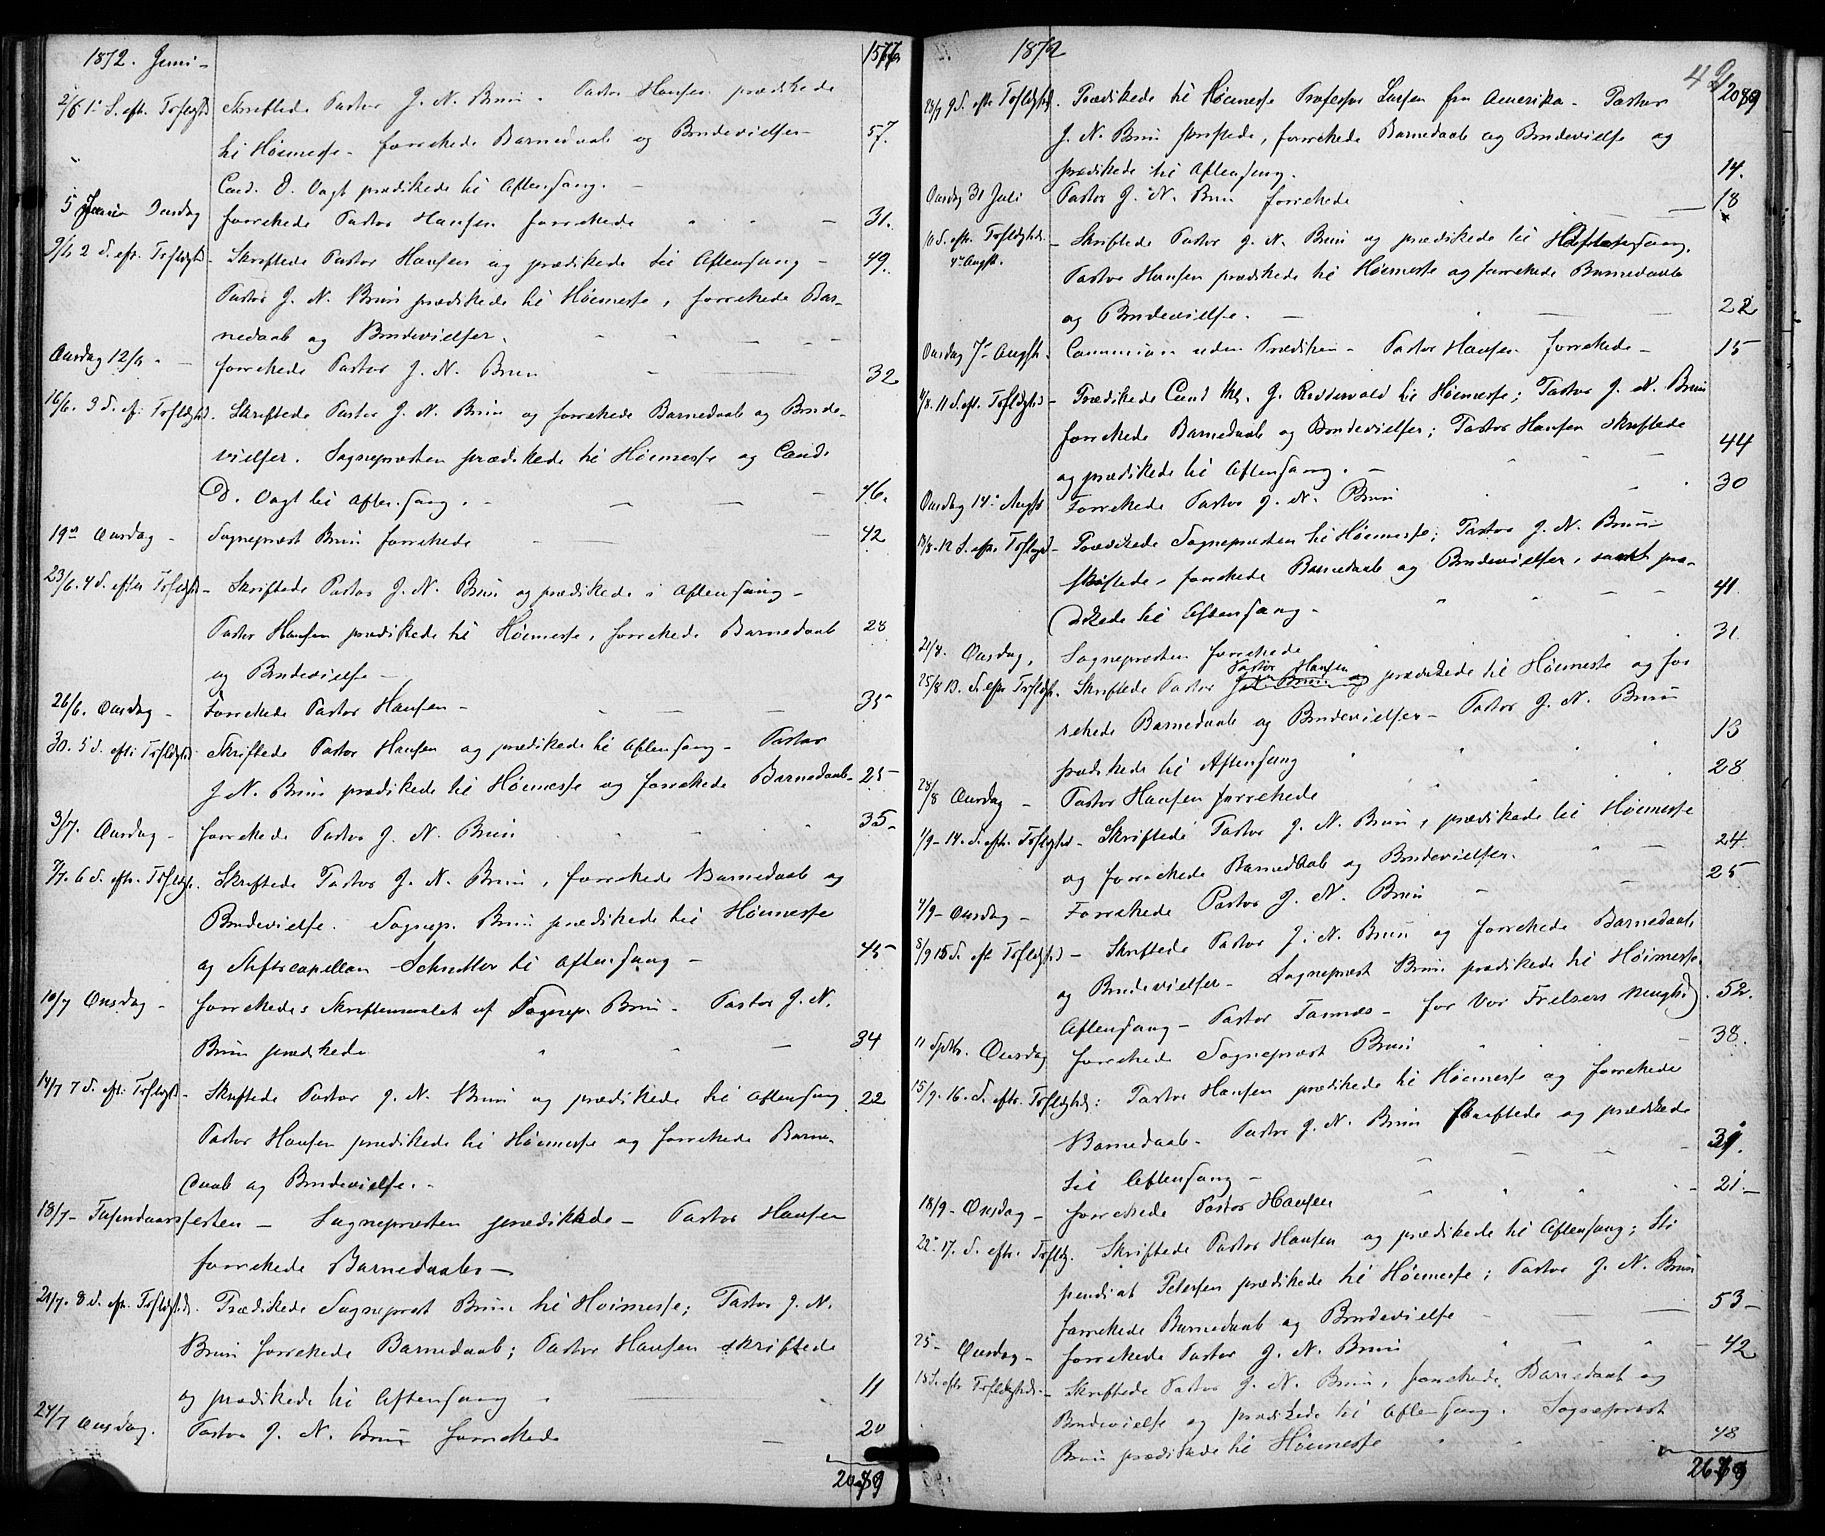 1872. Juni - 
2/6 1' S. eft. Trefoldghd Skriftede Pastor J. N. Brun. Pastor Hansen prædikede
til Høimesse - forrettede Barnedaab og Brudevielser - 57.
Cand. D. Vogt prædikede til Aftensang. -
5 Juni Onsdag forrettede Pastor Hansen forrettede - 31.
9/6 2 S. eft. Trefoldghd - Skriftede Pastor Hansen og prædikede til Aftensang - 49.
Pastor J. N. Brun prædikede til Høimesse, forrettede Bar-
nedaab og Brudevielser.
Onsdag 12/6 - forrettede Pastor J. N. Brun 32
16/6. 3 S. eft. Trefoldghd. Skriftede Pastor J. N. Brun og forrettede Barnedaab og Brude-
vielser. Sognepresten prædikede til Høimesse og Cand.
D. Vogt til Aftensang. - 46.
19de Onsdag - Sogneprest Brun forrettede 42
23/6. 4 S. efter Trefoldghd - Skriftede Pastor J. N. Brun og prædikede i Aftensang -
Pastor Hansen prædikede til Høimesse, forrettede Barnedaab 28
og Brudevielse -
26/6. Onsdag - Forrettede Pastor Hansen - 35
30. 5 S. eft: Trefoldghd Skriftede Pastor Hansen og prædikede til Aftensang - Pastor
J. N. Brun prædikede til Høimesse og forrettede Barnedaab - 25
3/7. Onsdag - forrettede Pastor J. N. Brun 35 -
7/7. 6 S. eft. Trefoldgh. Skriftede Pastor J. N. Brun, forrettede Barnedaab og
Brudevielse. Sognep. Brun prædikede til Høimesse
og Stiftscapellan til Aftensang - 45
10/7 Onsdag - forrettedes Skriftemaalet af Sognep. Brun - Pastor J. N.
Brun prædikede 34
14/7 7 S. eft. Trefoldghd - Skriftede Pastor J. N. Brun og prædikede til Aftensang 22
Pastor Hansen prædikede til Høimesse og forrettede Barne-
daab og Brudevielse. -
18/7 - Tusendaarsfesten - Sognepresten prædikede - Pastor Hansen
forrettede Barnedaab -
21/7. 8 S. eft. Trefoldghd. Prædikede Sogneprest Brun til Høimesse; Pastor J. N.
Brun forrettede Barnedaab; Pastor Hansen skriftede
og prædikede til Aftensang. 11
24/7 Onsdag. Pastor J. N. Brun forrettede 20
1872
28/7 9 S. eft. Trefoldghd. Prædikede til Høimesse Professor Larsen fra Amerika - Pastor
J. N. Brun skriftede, forrettede Barnedaab og Brudevielse og
prædikede til Aftensang. 14.
Onsdag 31 Juli Pastor J. N. Brun forrettede 18
10 S. eft. Trefoldghd. - Skriftede Pastor J. N. Brun og prædikede til Aftensang.
4de Augst. Pastor Hansen prædikede til Høimesse og forrettede Barnedaab
og Brudevielse. - 22
Onsdag 7de Augst. Communion uden Prædiken - Pastor Hansen forrettede - 15
11/8. 11 S. eft. Trefoldghd - Prædikede Cand. th. J. Rodtervald til Høimesse; Pastor J. N. Brun
forrettede Barnedaab og Brudevielser; Pastor Hansen skriftede
og prædikede til Aftensang. - 44
Onsdag 14de Augst Forrettede Pastor J. N. Brun 30
18/8. 12 S. eft. Trefoldghd - Prædikede Sognepresten til Høimesse; Pastor J. N. Brun
skriftede, forrettede Barnedaab og Brudevielser, samt præ-
dikede til Aftensang - 41.
21/8. Onsdag, Sognepresten forrettede 31.
Pastor Hansen
25/8 13. S. eft. Trefoldgh. Skriftede Pastor J. N. Brun og prædikede til Høimesse og for
rettede Barnedaab og Brudevielser - Pastor J. N. Brun
prædikede til Aftensang 13
28/8 Onsdag - Pastor Hansen forrettede 28
1/9 - 14. S. eft. Trefoldghd - Skriftede Pastor J. N. Brun, prædikede til Høimesse
og forrettede Barnedaab og Brudevielser. 24.
4/9 - Onsdag - Forrettede Pastor J. N. Brun 25
8/9 15 S. eft Trefoldghd - Skriftede Pastor J. N. Brun og forrettede Barnedaab
og Brudevielser - Sogneprest Brun prædikede til Høimesse.
Aftensang - Pastor - for Vor Frelsers Menghd) 52.
11 Septbr. Onsdag forrettede Sogneprest Brun - 38.
15/9. 16. S. eft. Trefoldghd: Pastor Hansen prædikede til Høimesse og forrettede
Barnedaab - Pastor J. N. Brun skriftede og prædikede
til Aftensang -
18/9 - Onsdag - forrettede Pastor Hansen - 21 -
22. 17. S. eft. Trefoldg. Skriftede Pastor Hansen og prædikede til Aftensang; Sti
pendiat Petersen prædikede til Høimesse; Pastor J. N. Brun
forrettede Barnedaab og Brudevielse 53 -
25 - Onsdag - forrettede Pastor J. N. Brun - 42
18 S. eft. Trefoldighed. - Skriftede Pastor J. N. Brun, forrettede Barnedaab og
Brudevielse og prædikede til Aftensang. Sogneprest
Brun prædikede til Høimesse 48